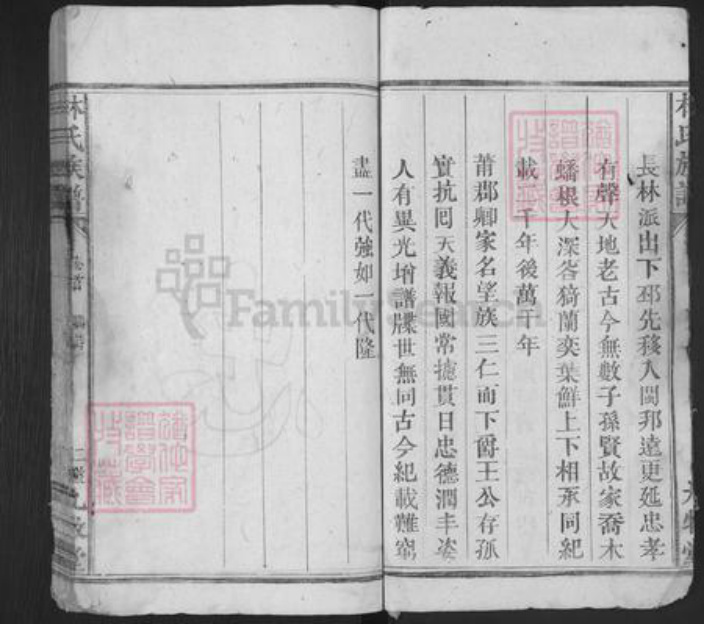 長林派出下邳先移入閩邦遠更延忠孝
有聲天地老古今無數子孫賢故家喬木
蟠根大深峇猗蘭奕葉鮮上下相承同紀
載一千年後萬千年
莆郡卿家名望族三仁而下爵王公存孤
實抗囘天義報國常摅貫日忠德潤丰姿
人有異光增譜牒世無同古今紀載難窮
盡一代強如一代隆
林氏族譜
九牧堂
FamilySearch